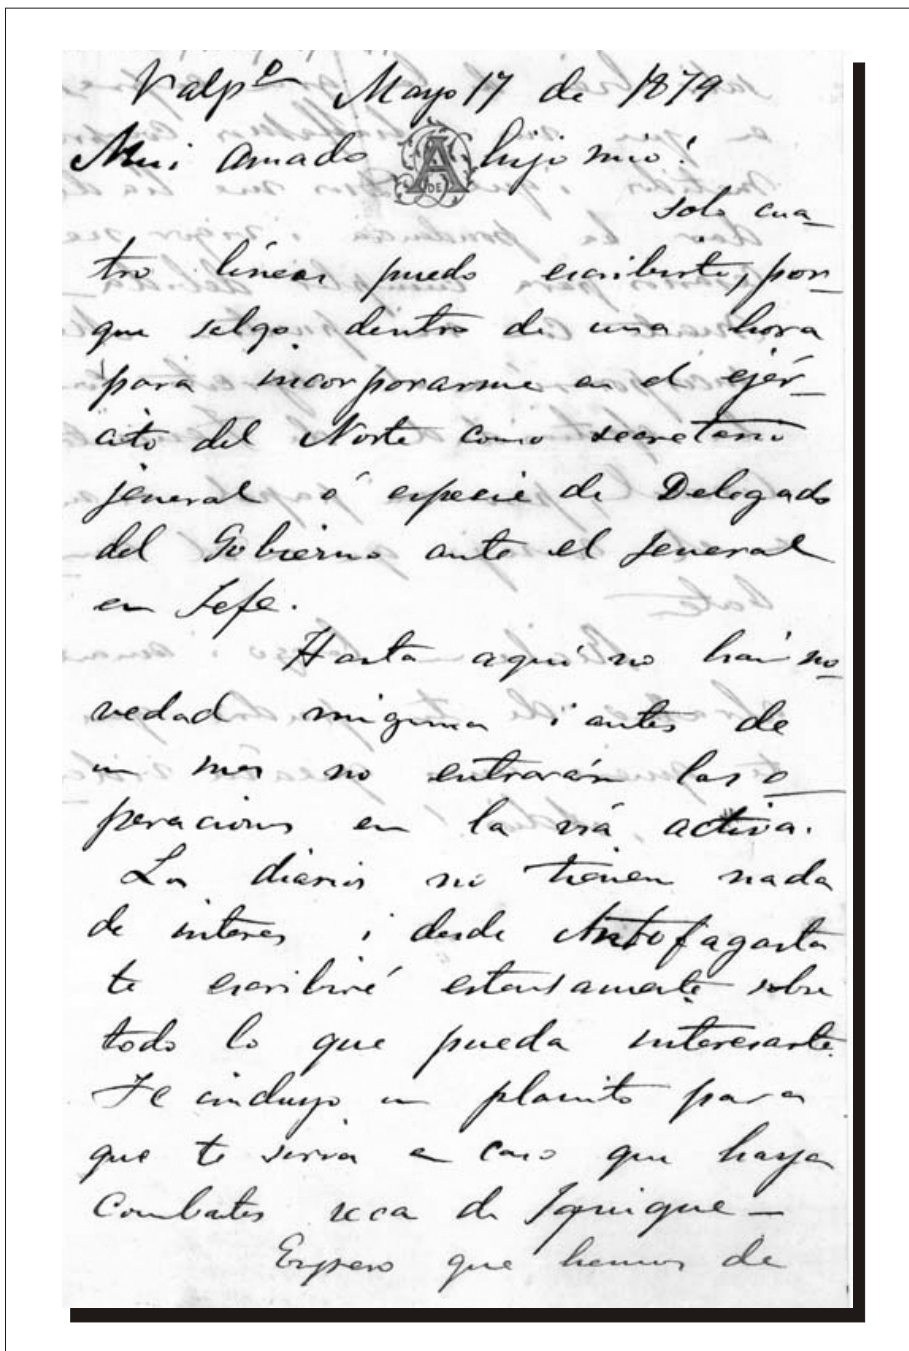 Valpº Mayo 17 de 1879
Mui amado hijo mio!
A
DE
Solo cua-
tro lineas puedo escribirte, por-
que salgo dentro de una hora
para incorporarme en el ejér-
cito del Norte como secretario
jeneral ó especie de Delegado
del Gobierno ante el Jeneral
en Jefe.
Hasta aquí no hai no-
vedad ninguna i antes de
un mes no entrarán las o-
peraciones en la viá activa.
Los diarios no tienen nada
de interes i desde Antofagasta
te escribiré estensamente sobre
todo lo que pueda interesarte.
Te incluyo un planito para
que te sirva en caso que haya
combates cerca de Iquique-
Espero que hemos de